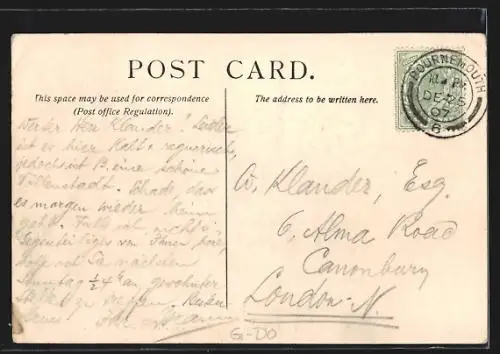 POST CARD.
This space may be used for correspondence
(Post office Regulation).
The address to be written here.
BOURNEMOUTH
DE 25
07
6
Werter Herr Klander! Leider
ist es hier kalt & regnerisch,
jedoch ist B. eine schöne
Villenstadt. Schade, dass
es morgen wieder
geht. Falls ich nichts
Gegenteiliges von Ihnen höre,
hole Sie nächsten
Sonntag ½ 4 an gewohnter
zu
A. Klander, Esq.
6, Alma Road
Canonbury
London N.
G-DO